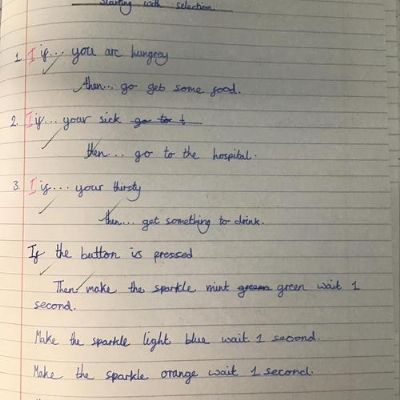 Starting with selection
1. I if... you are hungrey
then... go get some food.
2. I if... your sick go to t
then... go to the hospital.
3. I if... your thirsty
then... get something to drink.
If the button is pressed
Then make the sparkle mint green green wait 1
second.
Make the sparkle light blue wait 1 second.
Make the sparkle orange wait 1 second.